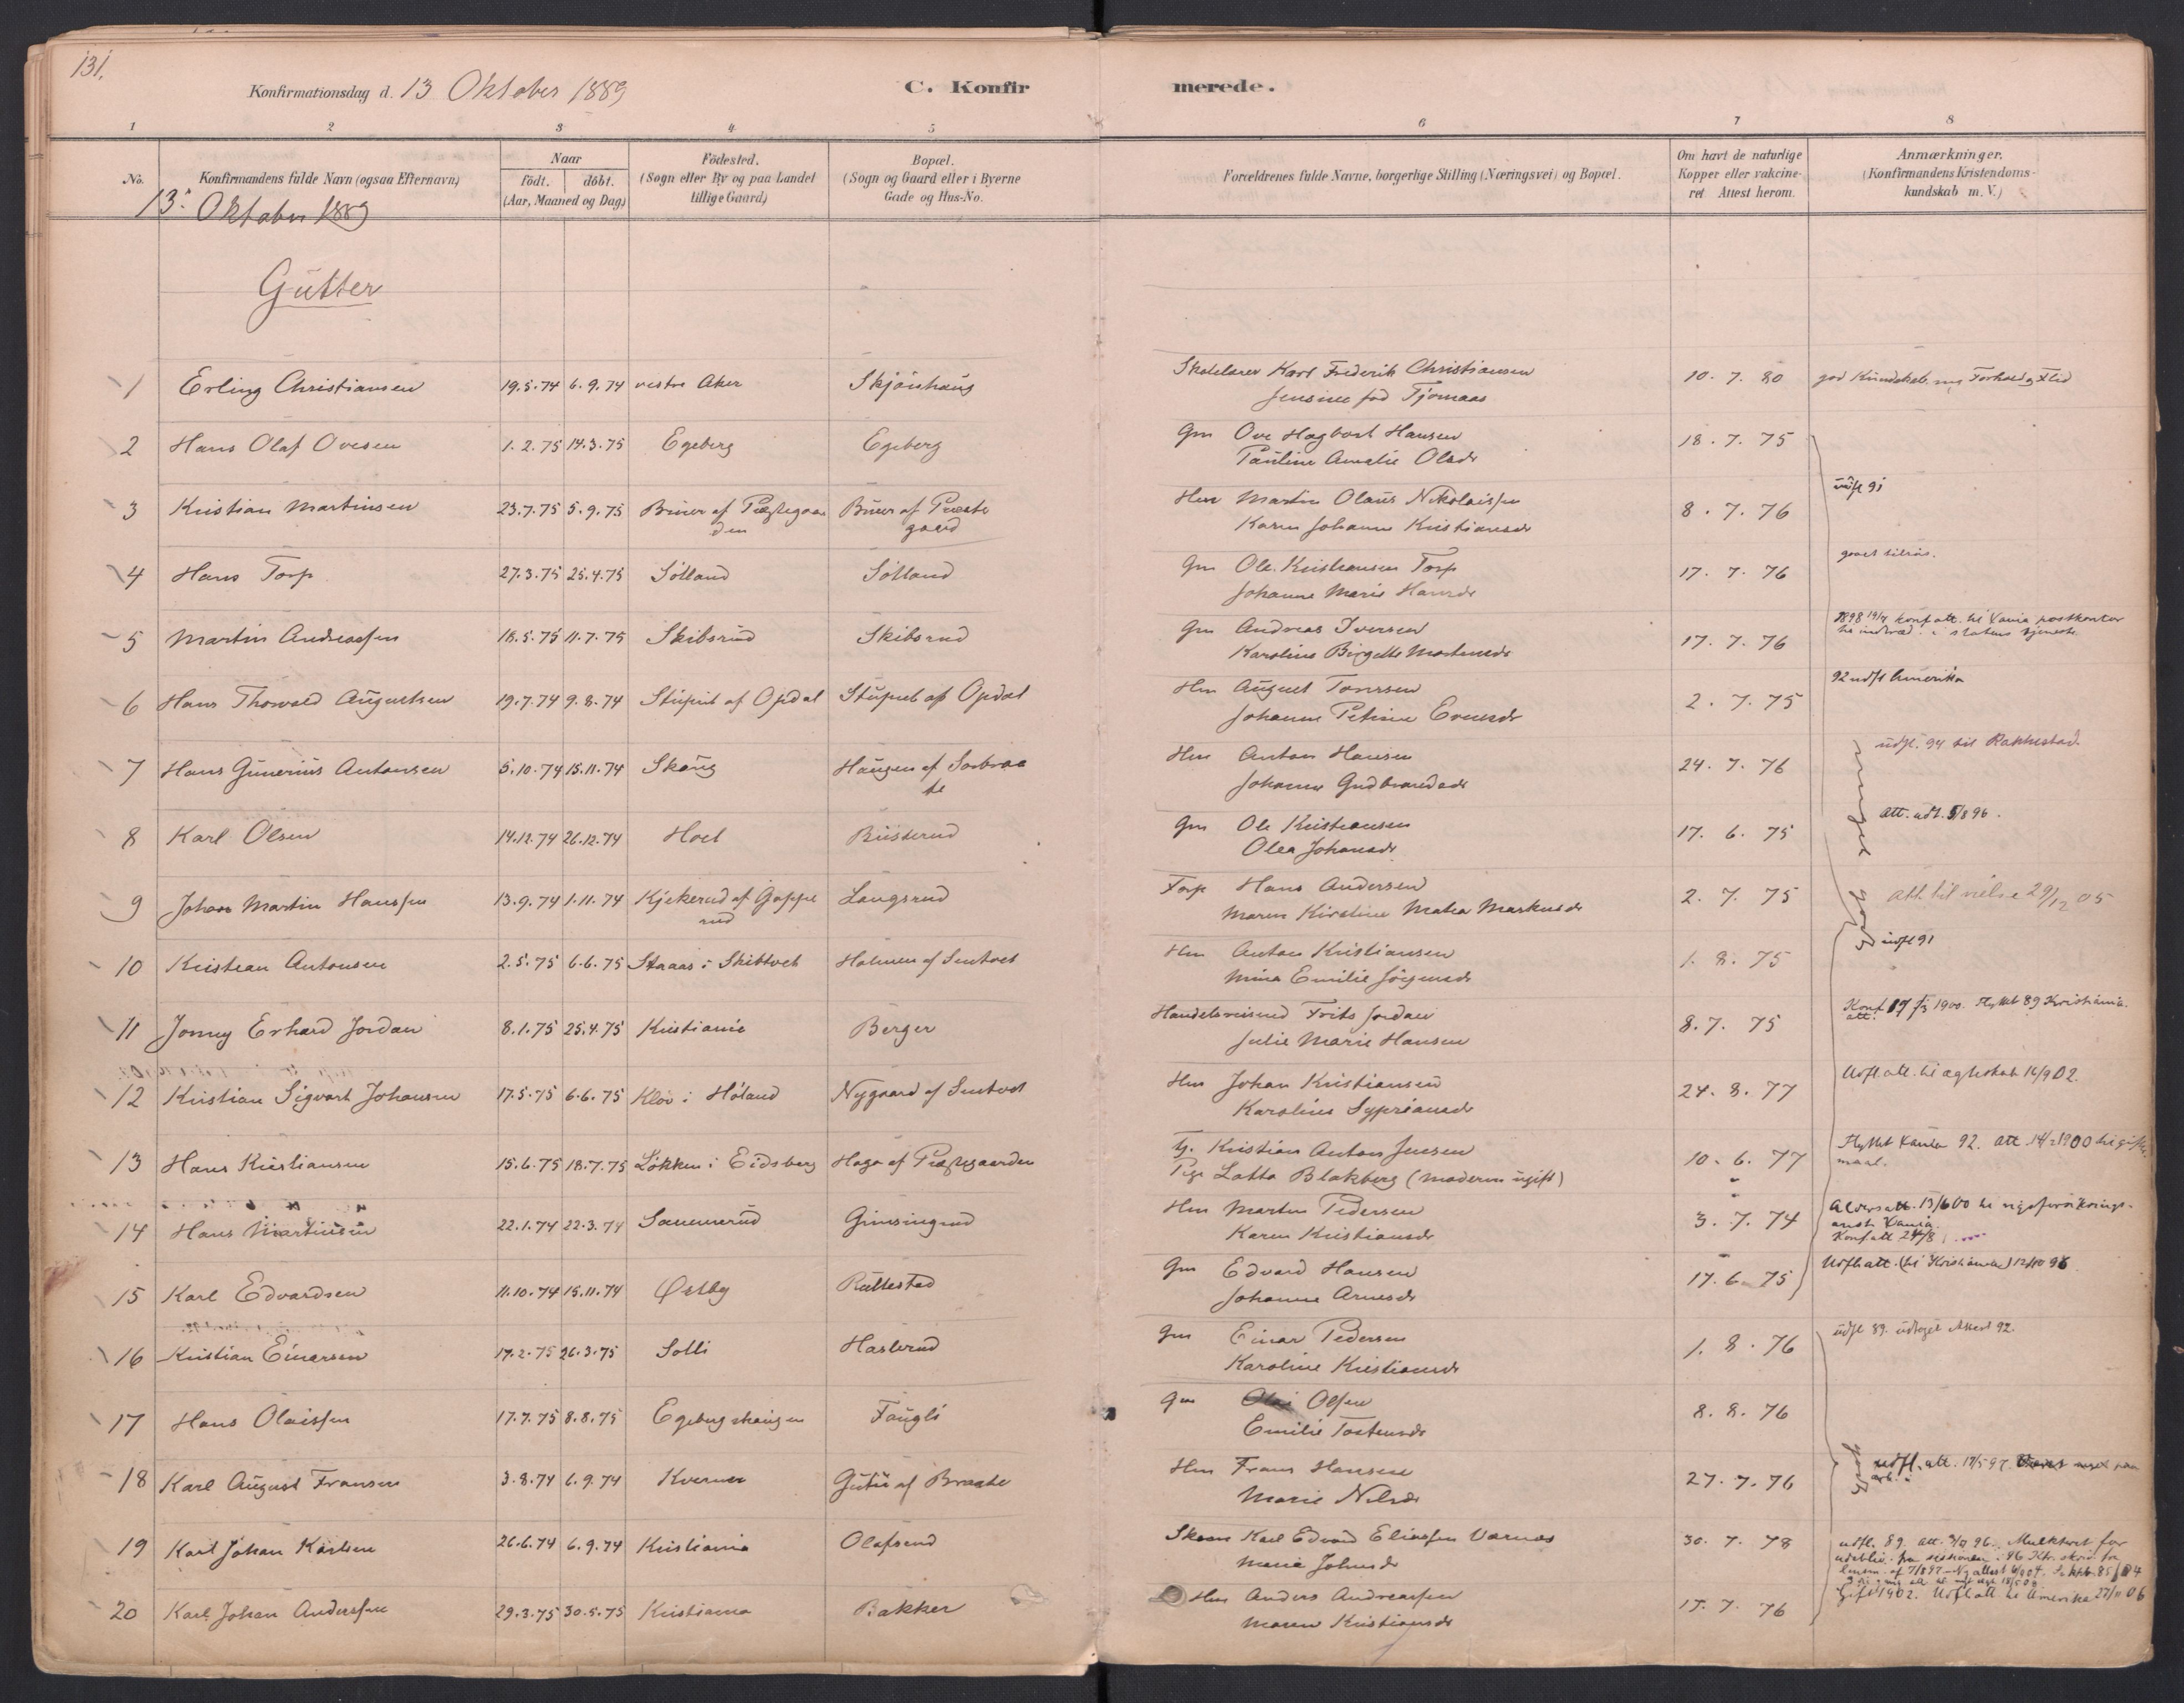 131.
Konfirmationsdag d. 13 Oktober 1889
C. Konfirmerede.
1 2 3 4 5 6 7 8
No.
Konfirmandens fulde Navn (ogsaa Efternavn)
Naar
födt. döbt.
(Aar, Maaned og Dag)
Födested.
(Sogn eller By og paa Landet
tillige Gaard)
Bopæl.
(Sogn og Gaard eller i Byerne
Gade og Hus-No.
Forældrenes fulde Navne, borgerlige Stilling (Næringsvei) og Bopæl.
Om havt de naturlige
Kopper eller vakcine-
ret Attest herom.
Anmærkninger.
(Konfirmandens Kristendoms-
kundskab m. V.)
13. Oktober 1889
Gutter
1 Erling Christiansen 19.5.74 6.9.74 vestre Aker Skjönhaug Karl Frederik Christiansen 10. 7. 80 god Kundskab
Jensine fød Tjomaas
2 Hans Olaf Ovesen 1.2.75 14.3.75 Egeberg Egeberg Gm Ove Hagbart Hansen 18. 7. 75
Pauline Amalie Olsdr
3 Kristian Martinsen 23.7.75 5.9.75 Hm Martin Olaus Nikolaissen 8. 7. 76 udfl 91
Karen Johanne Kristiansdr
4 Hans Torp 27.3.75 25.4.75 Sölland Sölland Gm Ole Kristiansen Torp 17. 7. 76
Johanne Marie Hansdr
5 Martin Andreassen 18.5.75 11.7.75 Skibsrud Skibsrud Gm Andreas Iversen 17. 7. 76
Karoline Birgitte Mortensdr
6 Hans Thorvald Augustsen 19.7.74 9.8.74 Stuput af Opdal Stuput af Opdal Hm August Tonesen 2. 7. 75 92 udfl Amerika
Johanne Petrine Evensdr
7 Hans Gunerius Antonsen 5.10.74 15.11.74 Skaug Haugen af Sorbraa Hm Anton Hansen 24. 7. 76 udfl. 94 til Rakkestad.
te Johanne Gudbrandsdr
8 Karl Olsen 14.12.74 26.12.74 Hoel Busterud Gm Ole Kristiansen 17. 6. 75 att. udt. 5/8 96.
Olea Johansdr
9 Johan Martin Hanssen 13.9.74 1.11.74 Kjekerud af Goppe Langsrud Torp Hans Andersen 2. 7. 75 Att. til vielse 29/12 05
rud Maren Kirstine Mathea Markusdr
10 Kristian Antonsen 2.5.75 6.6.75 Staaas i Skibtvet Holmen af Sentvet Hm Anton Kristiansen 1. 8. 75 udfl 91
Mina Emilie Jörgensdr
11 Jonny Erhard Jordan 8.1.75 25.4.75 Kristiania Berger Handelsreisend Frits Jordan 8. 7. 75 1900. Flyttet 89 Kristiania.
Julie Marie Hansen
12 Kristian Sigvart Johansen 17.5.75 6.6.75 Klov i Höland Nygaard af Sentvet Hm Johan Kristiansen 24. 8. 77 Udfl. att. til ægteskab 16/9 02.
Karoline Sypriansdr
13 Hans Kristiansen 15.6.75 18.7.75 Lökken i Eidsberg Haga af Præstegaarden Kristian Anton Jensen 10. 6. 77 Flyttet 92. att. 1900 til gifte
Pige Lotta Blakberg (moderen ugift) maal.
14 Hans Martinsen 22.1.74 22.3.74 Sanmerud Gimsingrud Hm Martin Pedersen 3. 7. 74 Aldersatt. 13/6 00
Karen Kristiansdr
15 Karl Edvardsen 11.10.74 15.11.74 Østby Rullestad Gm Edvard Hansen 17. 6. 75 Udfl att. (til Kristiania) 12/10 96
Johanne Arnesdr
16 Kristian Einarsen 17.2.75 26.3.75 Solli Haslerud Gm Einar Pedersen 1. 8. 76 udfl 89.
Karoline Kristiansdr
17 Hans Olaissen 17.7.75 8.8.75 Egeberg shaugen Faugli Gm Olai Olsen 8. 8. 76
Emilie Tostensdr
18 Karl August Fransen 3.8.74 6.9.74 Kverner Gutu af Braate Hm Frans Hansen 27. 7. 76 udfl. att. 17/5 97.
Marie Nilsdr
19 Karl Johan Karlsen 26.6.74 6.9.74 Kristiania Olafsrud Karl Edvard Eliassen Varnæs 30. 7. 78 udfl. 89. att. 96. Mulkteret for
Marie Johnsdr
20 Karl Johan Anderssen 29.3.75 30.5.75 Kristiania Bakker Hm Anders Andreassen 17. 7. 76 Gift 1902. Udfl att til Amerika 27/11 06
Maren Kristiansdr